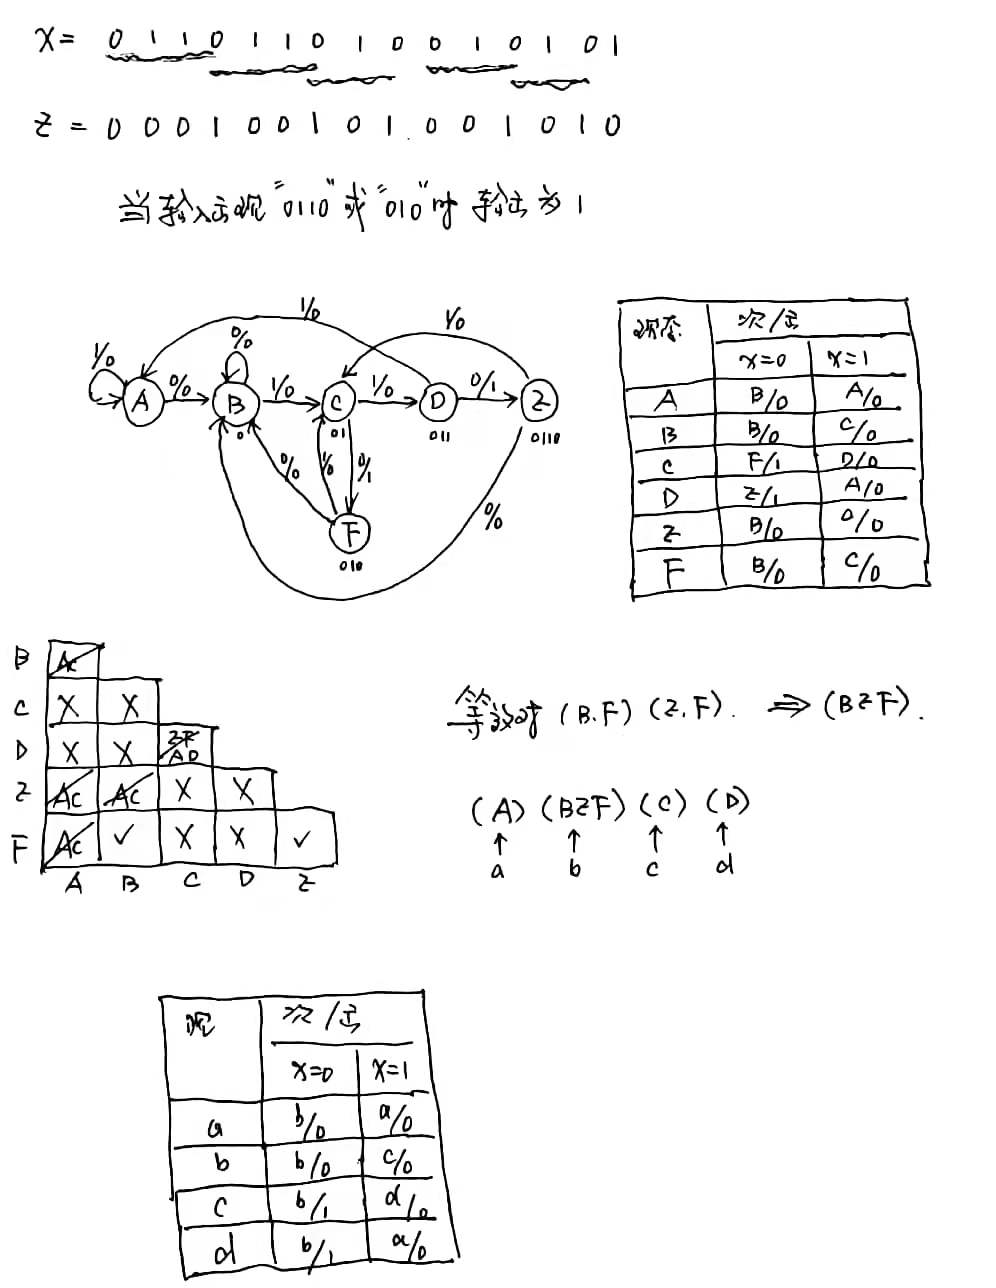 X= 0 1 1 0 1 1 0 1 0 0 1 0 1 0 1
Z = 0 0 0 1 0 0 1 0 1 . 0 0 1 0 1 0
当输入出现“0110”或“010”时 输出为1
1/0
1/0
0/0
1/0
A 0/0 B 1/0 C 1/0 D 0/1 Z
0 01 011 0110
0/0 1/0 0/1
0/0
F
010
现态 次/出
x=0 x=1
A B/0 A/0
B B/0 C/0
C F/1 D/0
D Z/1 A/0
Z B/0 0/0
F B/0 C/0
B AC
C X X
D X X ZF AD
Z AC AC X X
F AC ✓ X X ✓
A B C D Z
等效对 (B.F) (Z.F). ⇒ (BZF).
(A) (BZF) (C) (D)
↑ ↑ ↑ ↑
a b c d
现 次/出
x=0 X=1
a b/0 a/0
b b/0 c/0
c b/1 d/0
d b/1 a/0